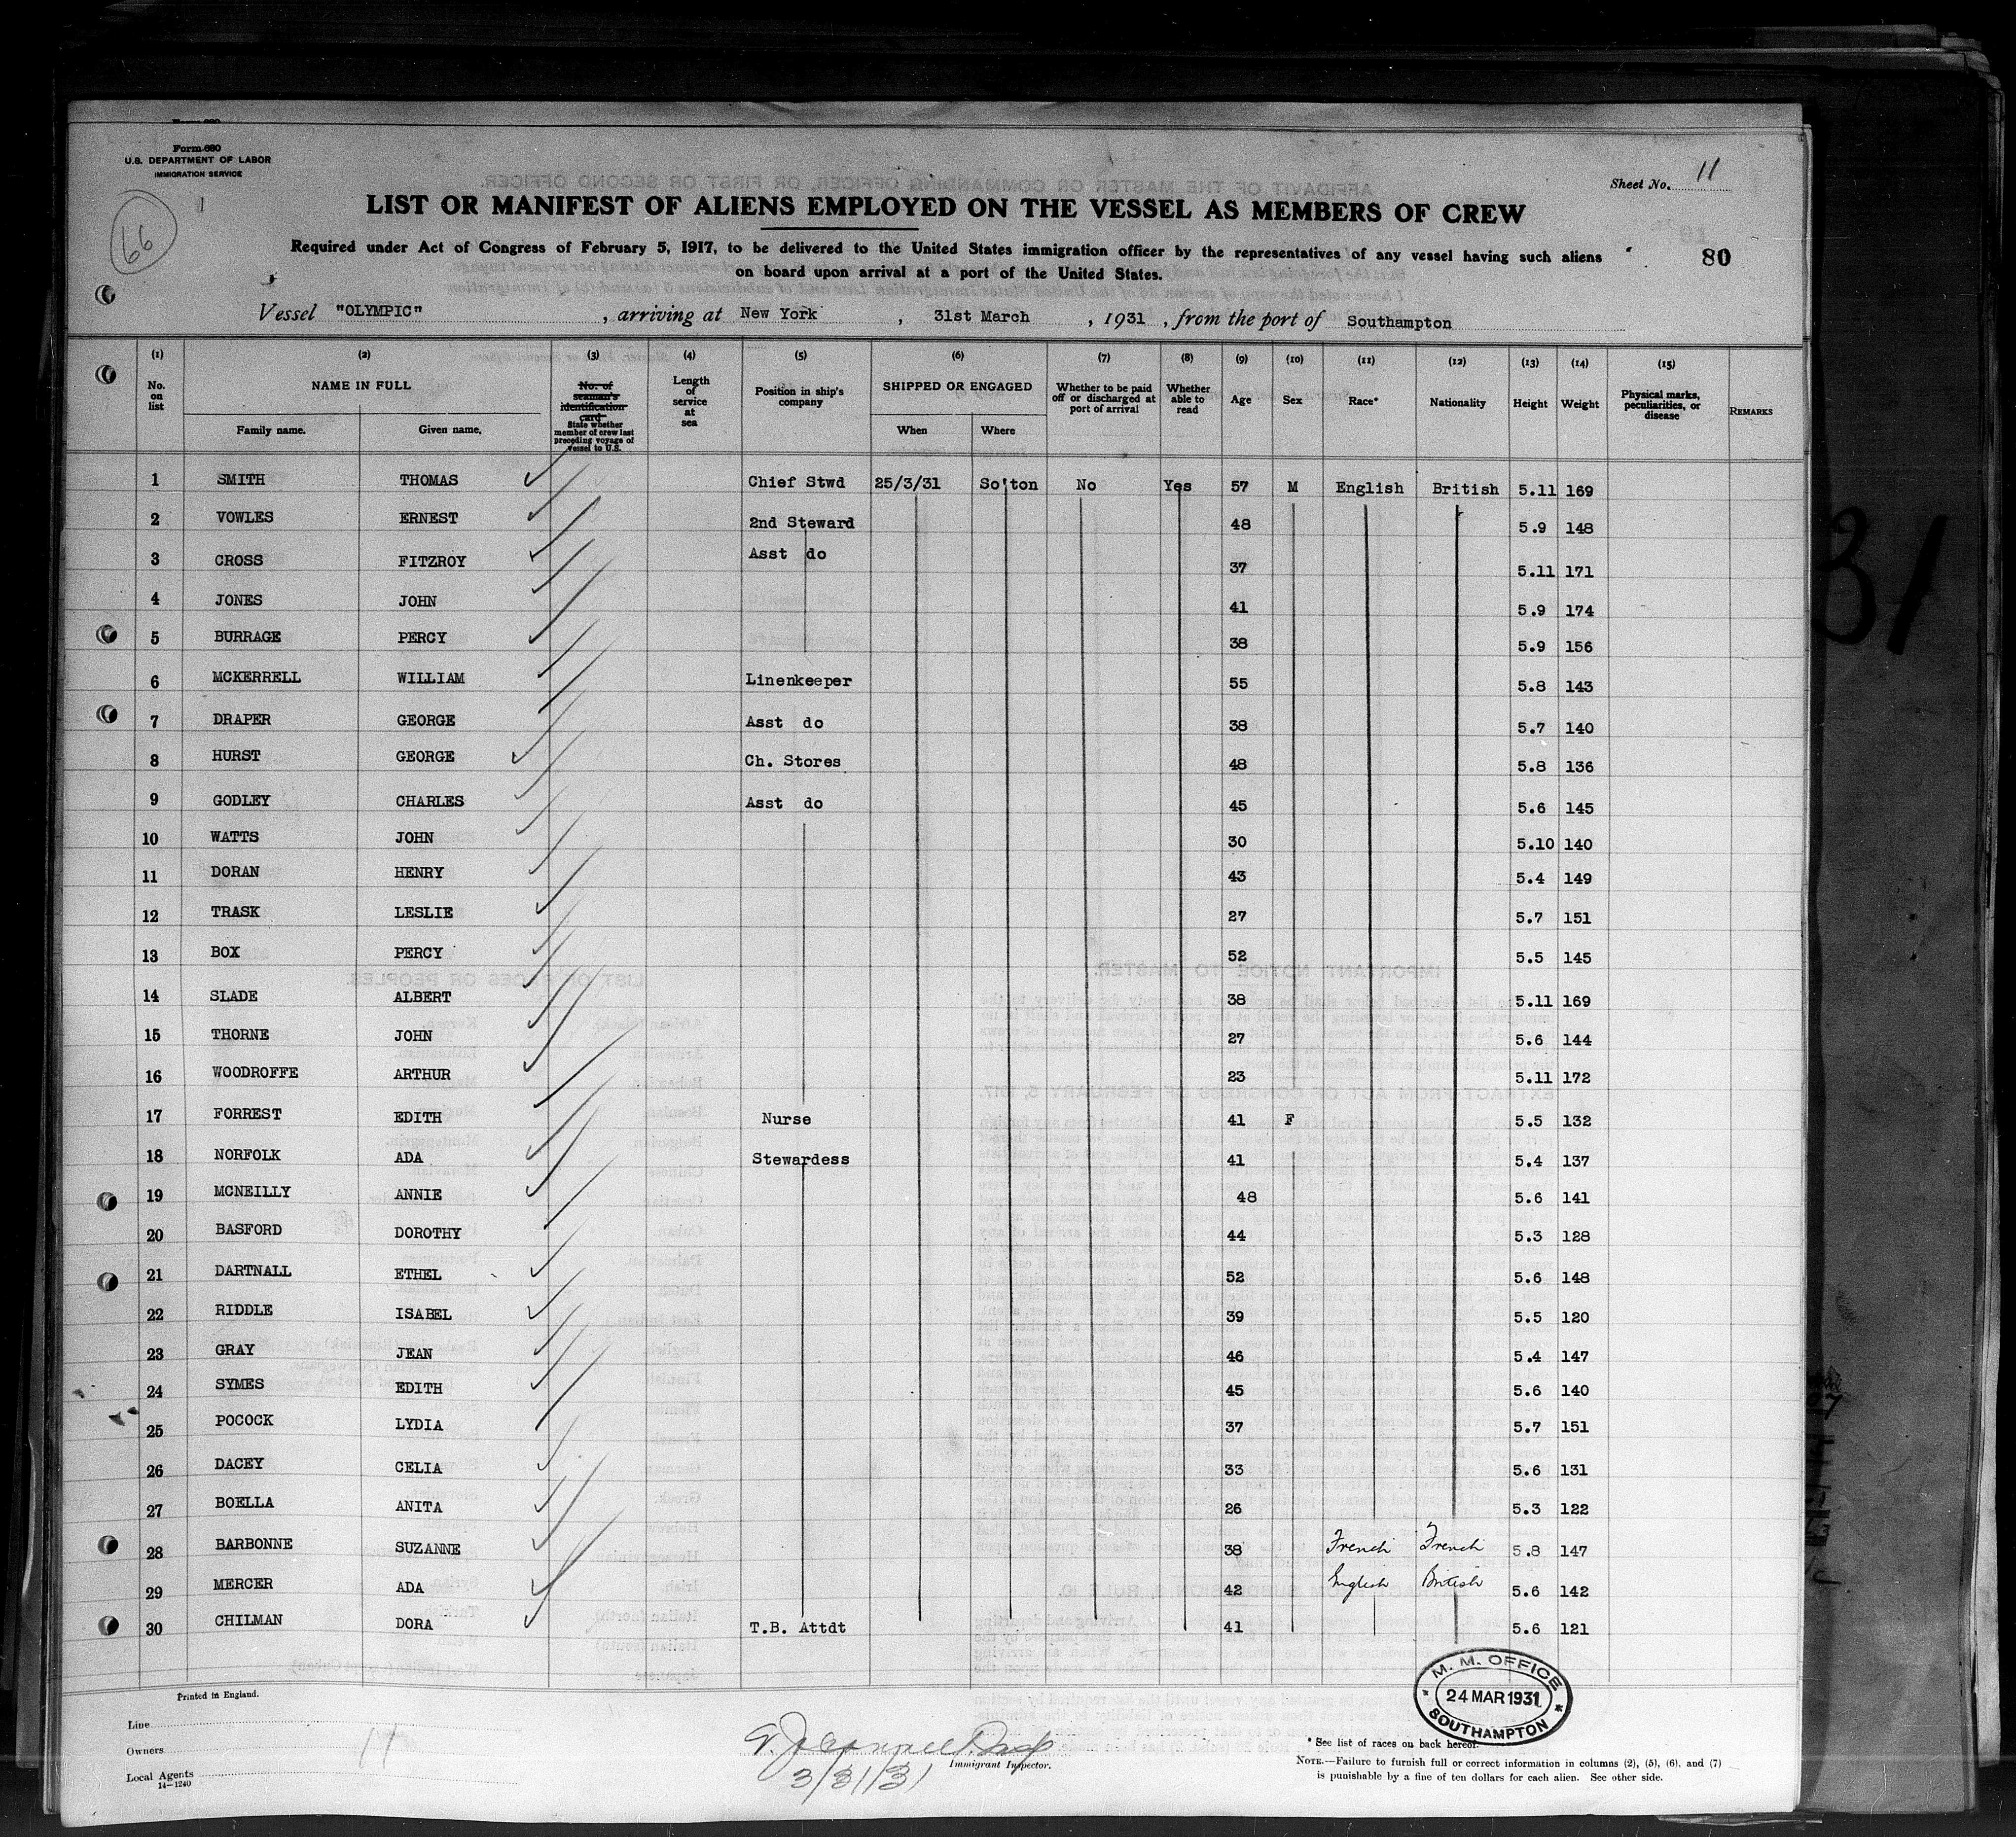 Form 680
U.S. DEPARTMENT OF LABOR
IMMIGRATION SERVICE
66
Sheet No. 11
LIST OR MANIFEST OF ALIENS EMPLOYED ON THE VESSEL AS MEMBERS OF CREW
Required under Act of Congress of February 5, 1917, to be delivered to the United States immigration officer by the representatives of any vessel having such aliens
on board upon arrival at a port of the United States.
80
Vessel "OLYMPIC", arriving at New York, 31st March, 1931, from the port of Southampton
(1) (2) (3) (4) (5) (6) (7) (8) (9) (10) (11) (12) (13) (14) (15)
No. on list NAME IN FULL Family name. Given name. No. of seaman's identification card State whether member of crew last preceding voyage of vessel to U.S. Length of service at sea Position in ship's company SHIPPED OR ENGAGED When Where Whether to be paid off or discharged at port of arrival Whether able to read Age Sex Race* Nationality Height Weight Physical marks, peculiarities, or disease REMARKS
1 SMITH THOMAS Chief Stwd 25/3/31 So'ton No Yes 57 M English British 5.11 169
2 VOWLES ERNEST 2nd Steward 48 5.9 148
3 CROSS FITZROY Asst do 37 5.11 171
4 JONES JOHN 41 5.9 174
5 BURRAGE PERCY 38 5.9 156
6 MCKERRELL WILLIAM Linenkeeper 55 5.8 143
7 DRAPER GEORGE Asst do 38 5.7 140
8 HURST GEORGE Ch. Stores 48 5.8 136
9 GODLEY CHARLES Asst do 45 5.6 145
10 WATTS JOHN 30 5.10 140
11 DORAN HENRY 43 5.4 149
12 TRASK LESLIE 27 5.7 151
13 BOX PERCY 52 5.5 145
14 SLADE ALBERT 38 5.11 169
15 THORNE JOHN 27 5.6 144
16 WOODROFFE ARTHUR 23 5.11 172
17 FORREST EDITH Nurse 41 F 5.5 132
18 NORFOLK ADA Stewardess 41 5.4 137
19 MCNEILLY ANNIE 48 5.6 141
20 BASFORD DOROTHY 44 5.3 128
21 DARTNALL ETHEL 52 5.6 148
22 RIDDLE ISABEL 39 5.5 120
23 GRAY JEAN 46 5.4 147
24 SYMES EDITH 45 5.6 140
25 POCOCK LYDIA 37 5.7 151
26 DACEY CELIA 33 5.6 131
27 BOELLA ANITA 26 5.3 122
28 BARBONNE SUZANNE 38 French French 5.8 147
29 MERCER ADA 42 English British 5.6 142
30 CHILMAN DORA T.B. Attdt 41 5.6 121
Printed in England.
M. M. OFFICE
24 MAR 1931
SOUTHAMPTON
Line
Owners
Local Agents
14-1240
Immigrant Inspector.
3/31/31
* See list of races on back hereof.
NOTE.—Failure to furnish full or correct information in columns (2), (5), (6), and (7)
is punishable by a fine of ten dollars for each alien. See other side.
31